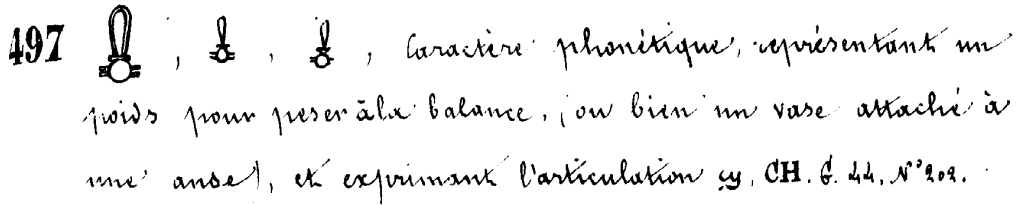 497 , , , Caractère phonétique, représentant un
poids pour peser à la balance, (ou bien un vase attaché à
une anse), et exprimant l'articulation , CH. G. 44, N° 202.